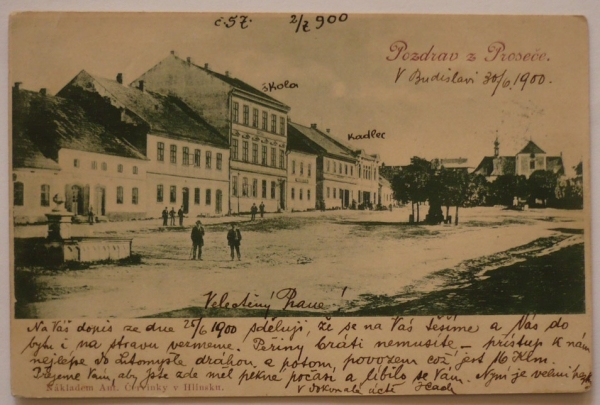 č.57. 2/7 900
Pozdrav z Proseče.
V Budislavi 30/6.1900.
škola
Kadlec
Velectěný Pane!
Na Váš dopis ze dne 25/6 1900 sděluji, že se na Vás těšíme a Vás do
bytu i na stravu vezmeme. Peřiny bráti nemusíte – přístup k nám
nejlépe do Litomyšle dráhou a potom povozem což jest 16 Klm.
Přejeme Vám, aby jste zde měl pěkné počasí a líbilo se Vám. Nyní je velmi
V dokonalé úctě
Nákladem Ant. Červinky v Hlinsku.